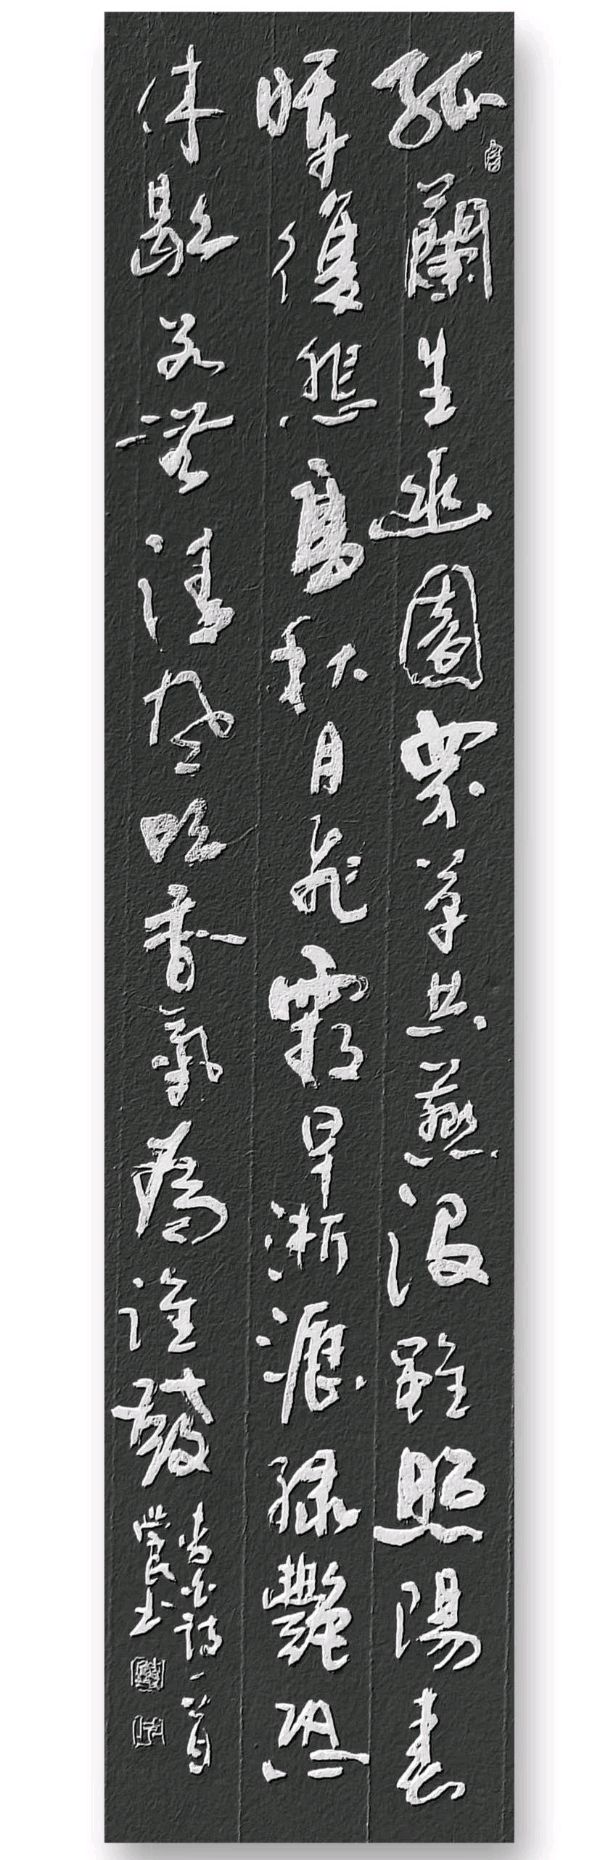 孤蘭生幽園眾草共蕪沒雖照陽春
暉復悲高秋月飛霜早淅瀝綠艷恐
休歇若無清風吹香氣為誰發
李白詩一首